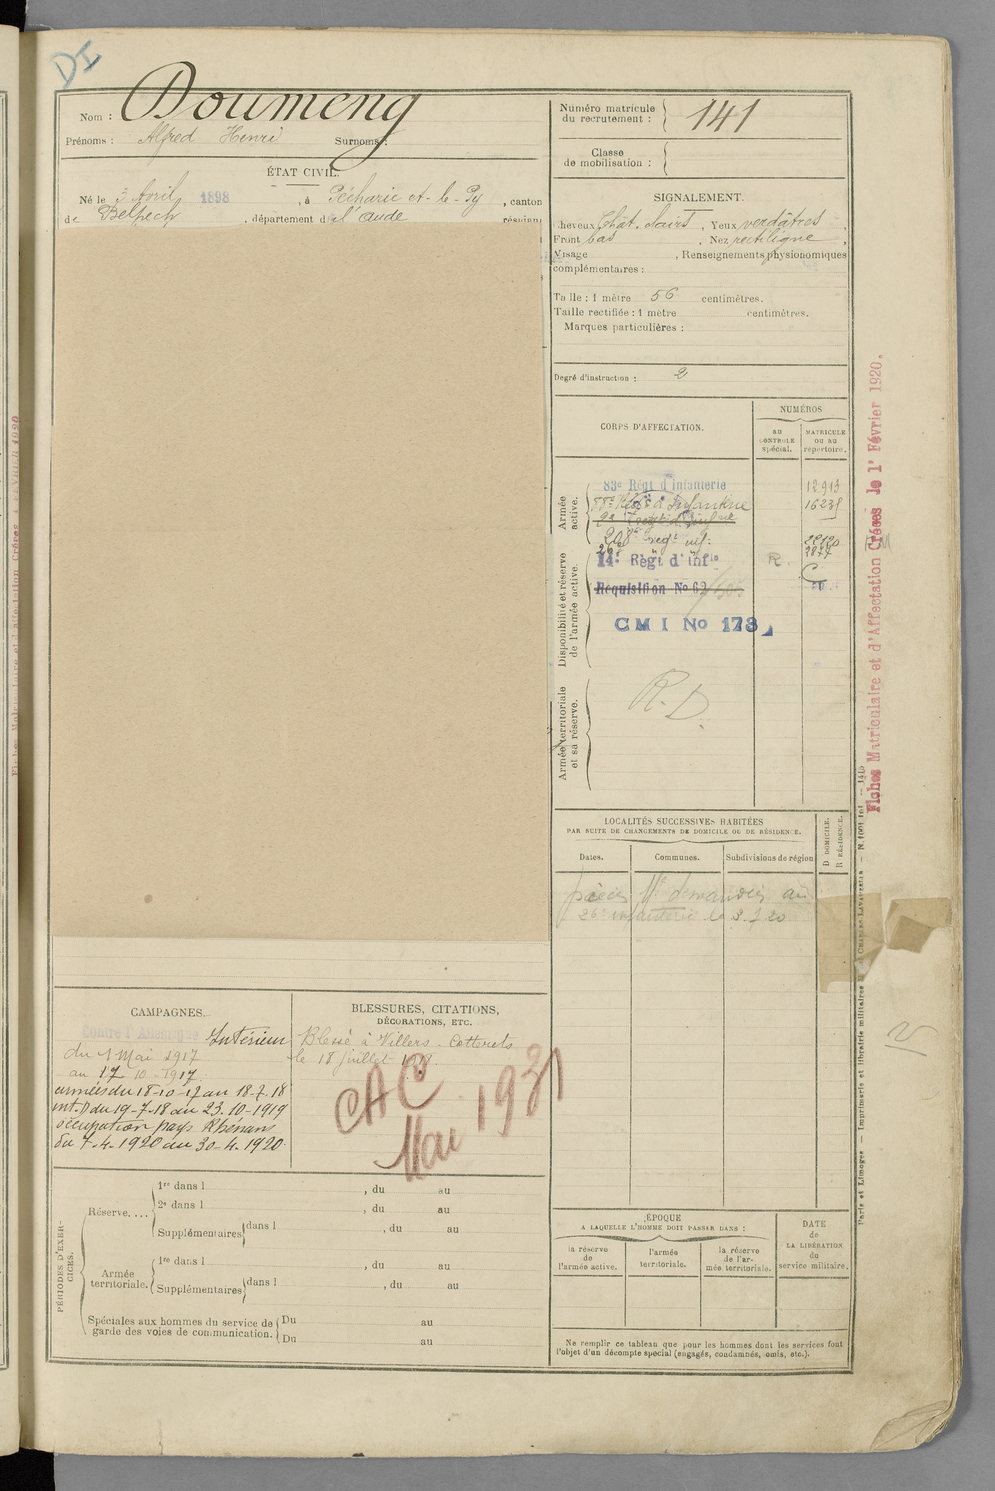 DI
Nom : Doumeng
Prénoms : Alfred Henri Surnoms :
ÉTAT CIVIL.
Né le 3 Avril 1898, à Pécharic et-le-Py, canton
de Belpech, département de l'Aude
Numéro matricule
du recrutement : 141
Classe
de mobilisation :
SIGNALEMENT.
Cheveux Chât. clairs, Yeux verdâtres,
Front bas, Nez rectiligne,
Visage , Renseignements physionomiques
complémentaires :
Taille : 1 mètre 56 centimètres.
Taille rectifiée : 1 mètre centimètres.
Marques particulières :
Degré d'instruction : 2
CORPS D'AFFECTATION.
NUMÉROS
au
CONTROLE
spécial.
MATRICULE
ou au
répertoire.
Armée
active.
83e Régt d'Infanterie 12913
Régt d'Infanterie 16235
268e regt inf.
26e " "
Disponibilité et réserve
de l'armée active.
14e Règt d'infie R.
Requisition No 62
C M I No 173
Armée territoriale
et sa réserve.
R. D.
LOCALITÉS SUCCESSIVES HABITÉES
PAR SUITE DE CHANGEMENTS DE DOMICILE OU DE RÉSIDENCE.
D DOMICILE.
R RÉSIDENCE.
Dates. Communes. Subdivisions de région
pièces Mle demandées au
26e infanterie le 8.7.20
CAMPAGNES.
Contre l'Allemagne Intérieur
du 1 Mai 1917
au 17 10-1917.
armées du 18-10-17 au 18-7-18
int.D du 19-7-18 au 23.10-1919
occupation pays Rhénans
du 7-4-1920 au 30-4-1920
BLESSURES, CITATIONS,
DÉCORATIONS, ETC.
Blessé à Villers-Cotterets
le 18 juillet 1918.
CAC
Mai 1931
PÉRIODES D'EXER-
CICES.
Réserve....
1re dans l , du au
2e dans l , du au
Supplémentaires dans l , du au
Armée
territoriale.
1re dans l , du au
Supplémentaires dans l , du au
Spéciales aux hommes du service de
garde des voies de communication.
Du au
Du au
ÉPOQUE
A LAQUELLE L'HOMME DOIT PASSER DANS :
la réserve
de
l'armée active.
l'armée
territoriale.
la réserve
de l'ar-
mée territoriale.
DATE
de
LA LIBÉRATION
du
service militaire.
Ne remplir ce tableau que pour les hommes dont les services font
l'objet d'un décompte spécial (engagés, condamnés, omis, etc.).
Fiches Matriculaire et d'Affectation Créées le 1r Février 1920.
Paris et Limoges — Imprimerie et librairie militaires